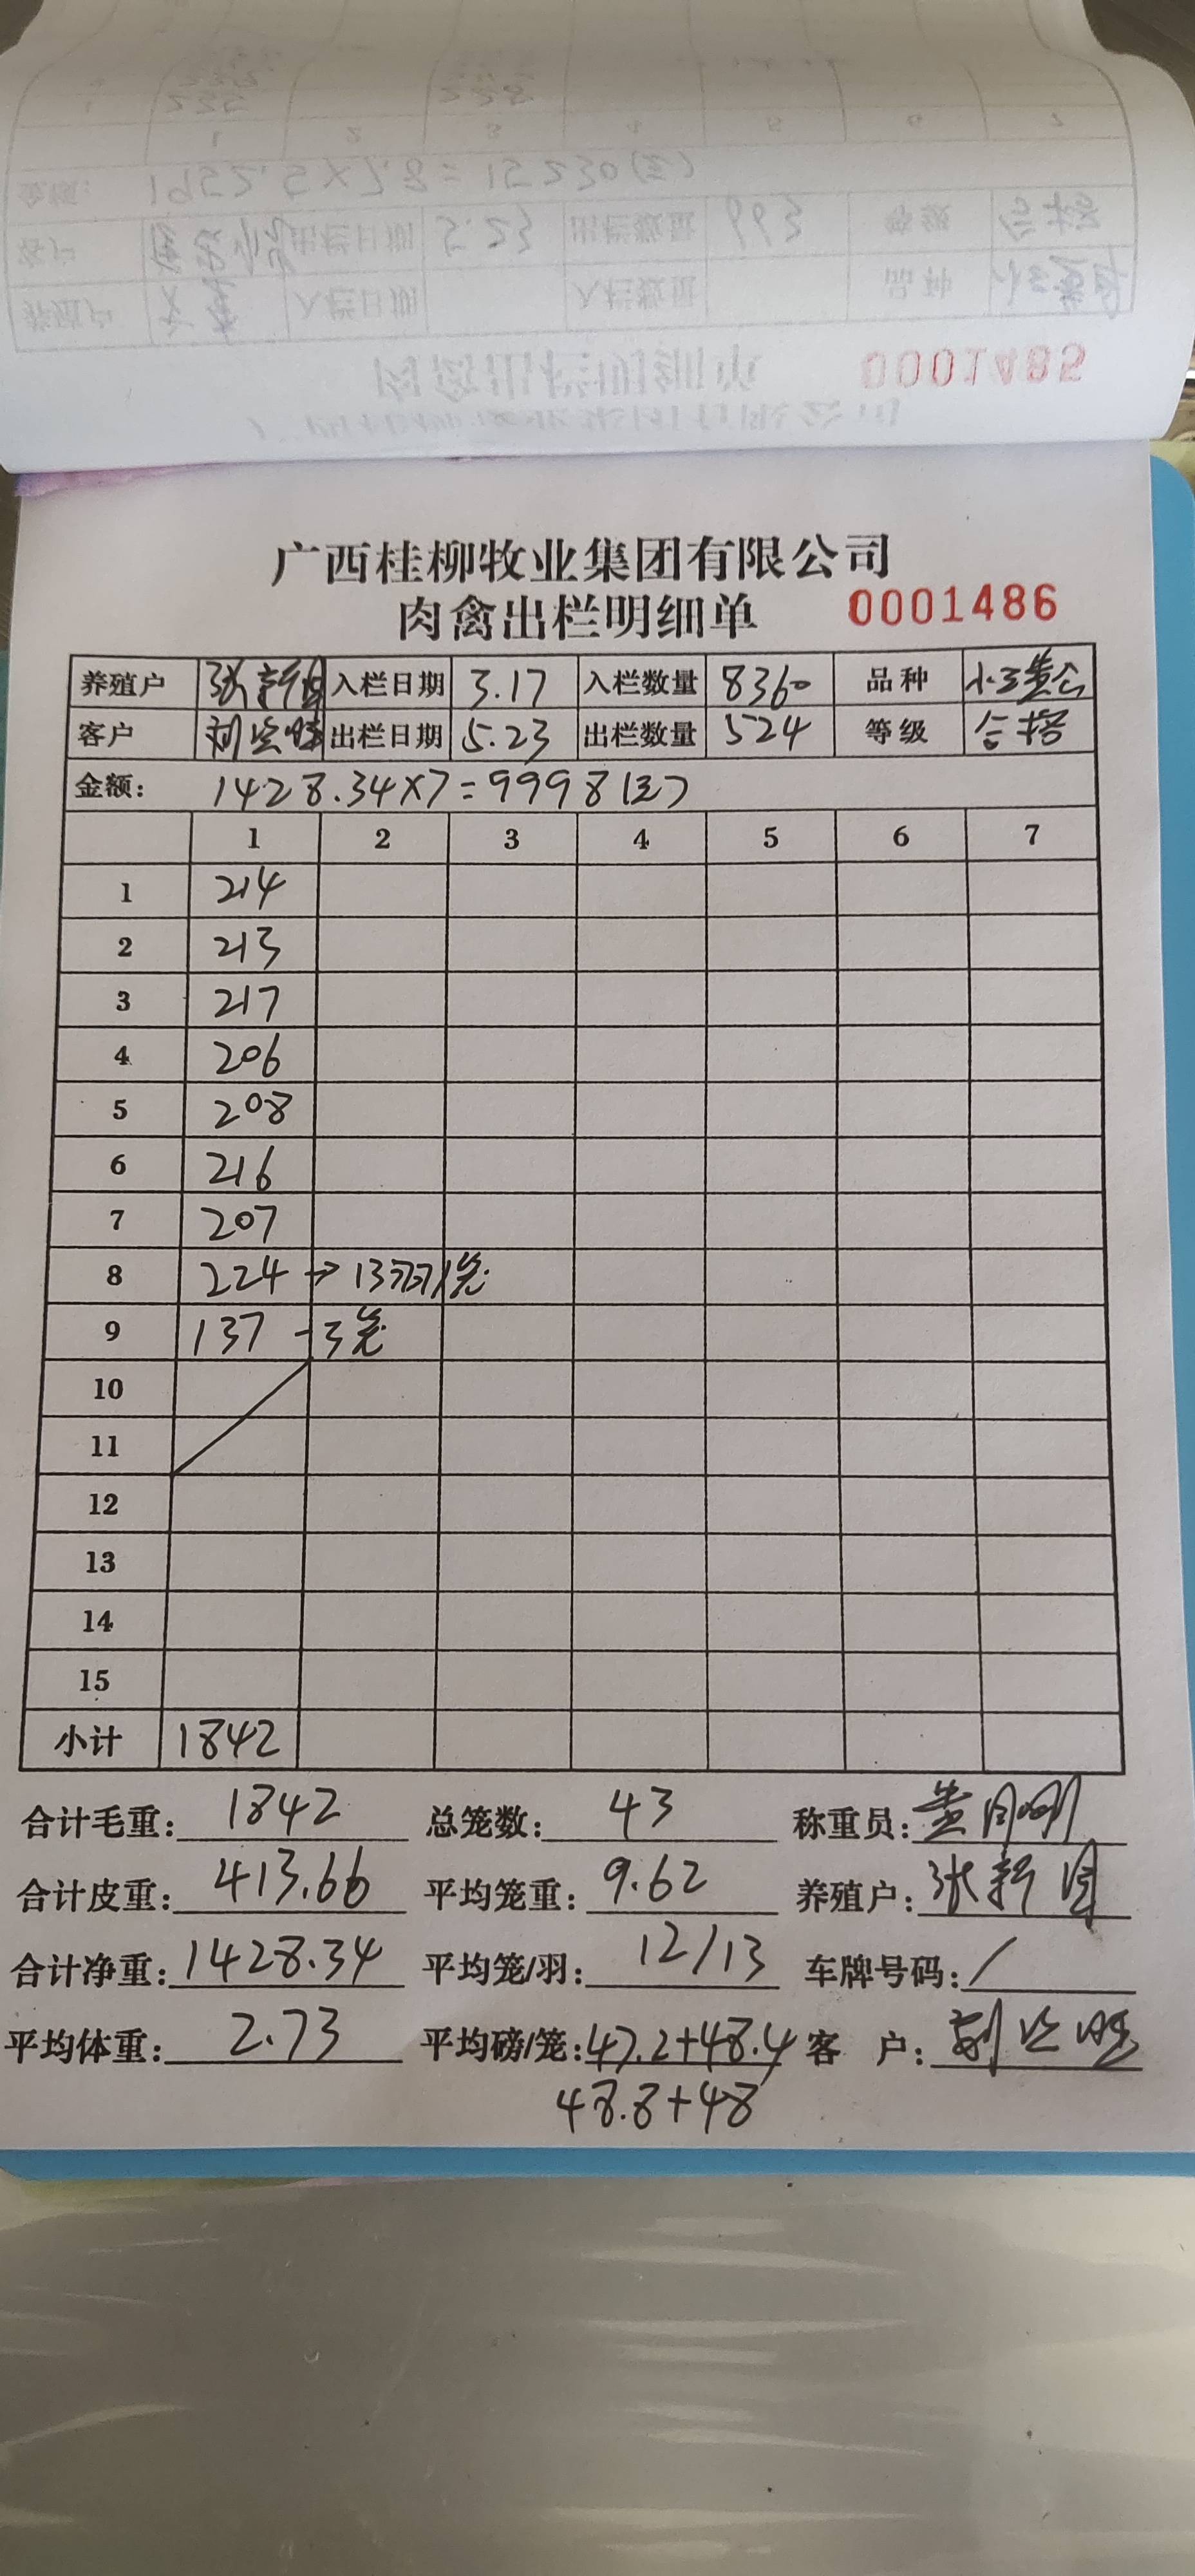 0001485
广西桂柳牧业集团有限公司
肉禽出栏明细单 0001486
养殖户 张新国 入栏日期 3.17 入栏数量 8360 品种 小三黄公
客户 出栏日期 5.23 出栏数量 524 等级 合格
金额: 1428.34×7=9998(元)
1 2 3 4 5 6 7
1 214
2 213
3 217
4 206
5 208
6 216
7 207
8 224 → 13羽/笼
9 137 -3笼
10
11
12
13
14
15
小计 1842
合计毛重: 1842 总笼数: 43 称重员: 黄
合计皮重: 413.66 平均笼重: 9.62 养殖户: 张新国
合计净重: 1428.34 平均笼/羽: 12/13 车牌号码: /
平均体重: 2.73 平均磅/笼: 47.2+48.4 客 户:
48.8+48